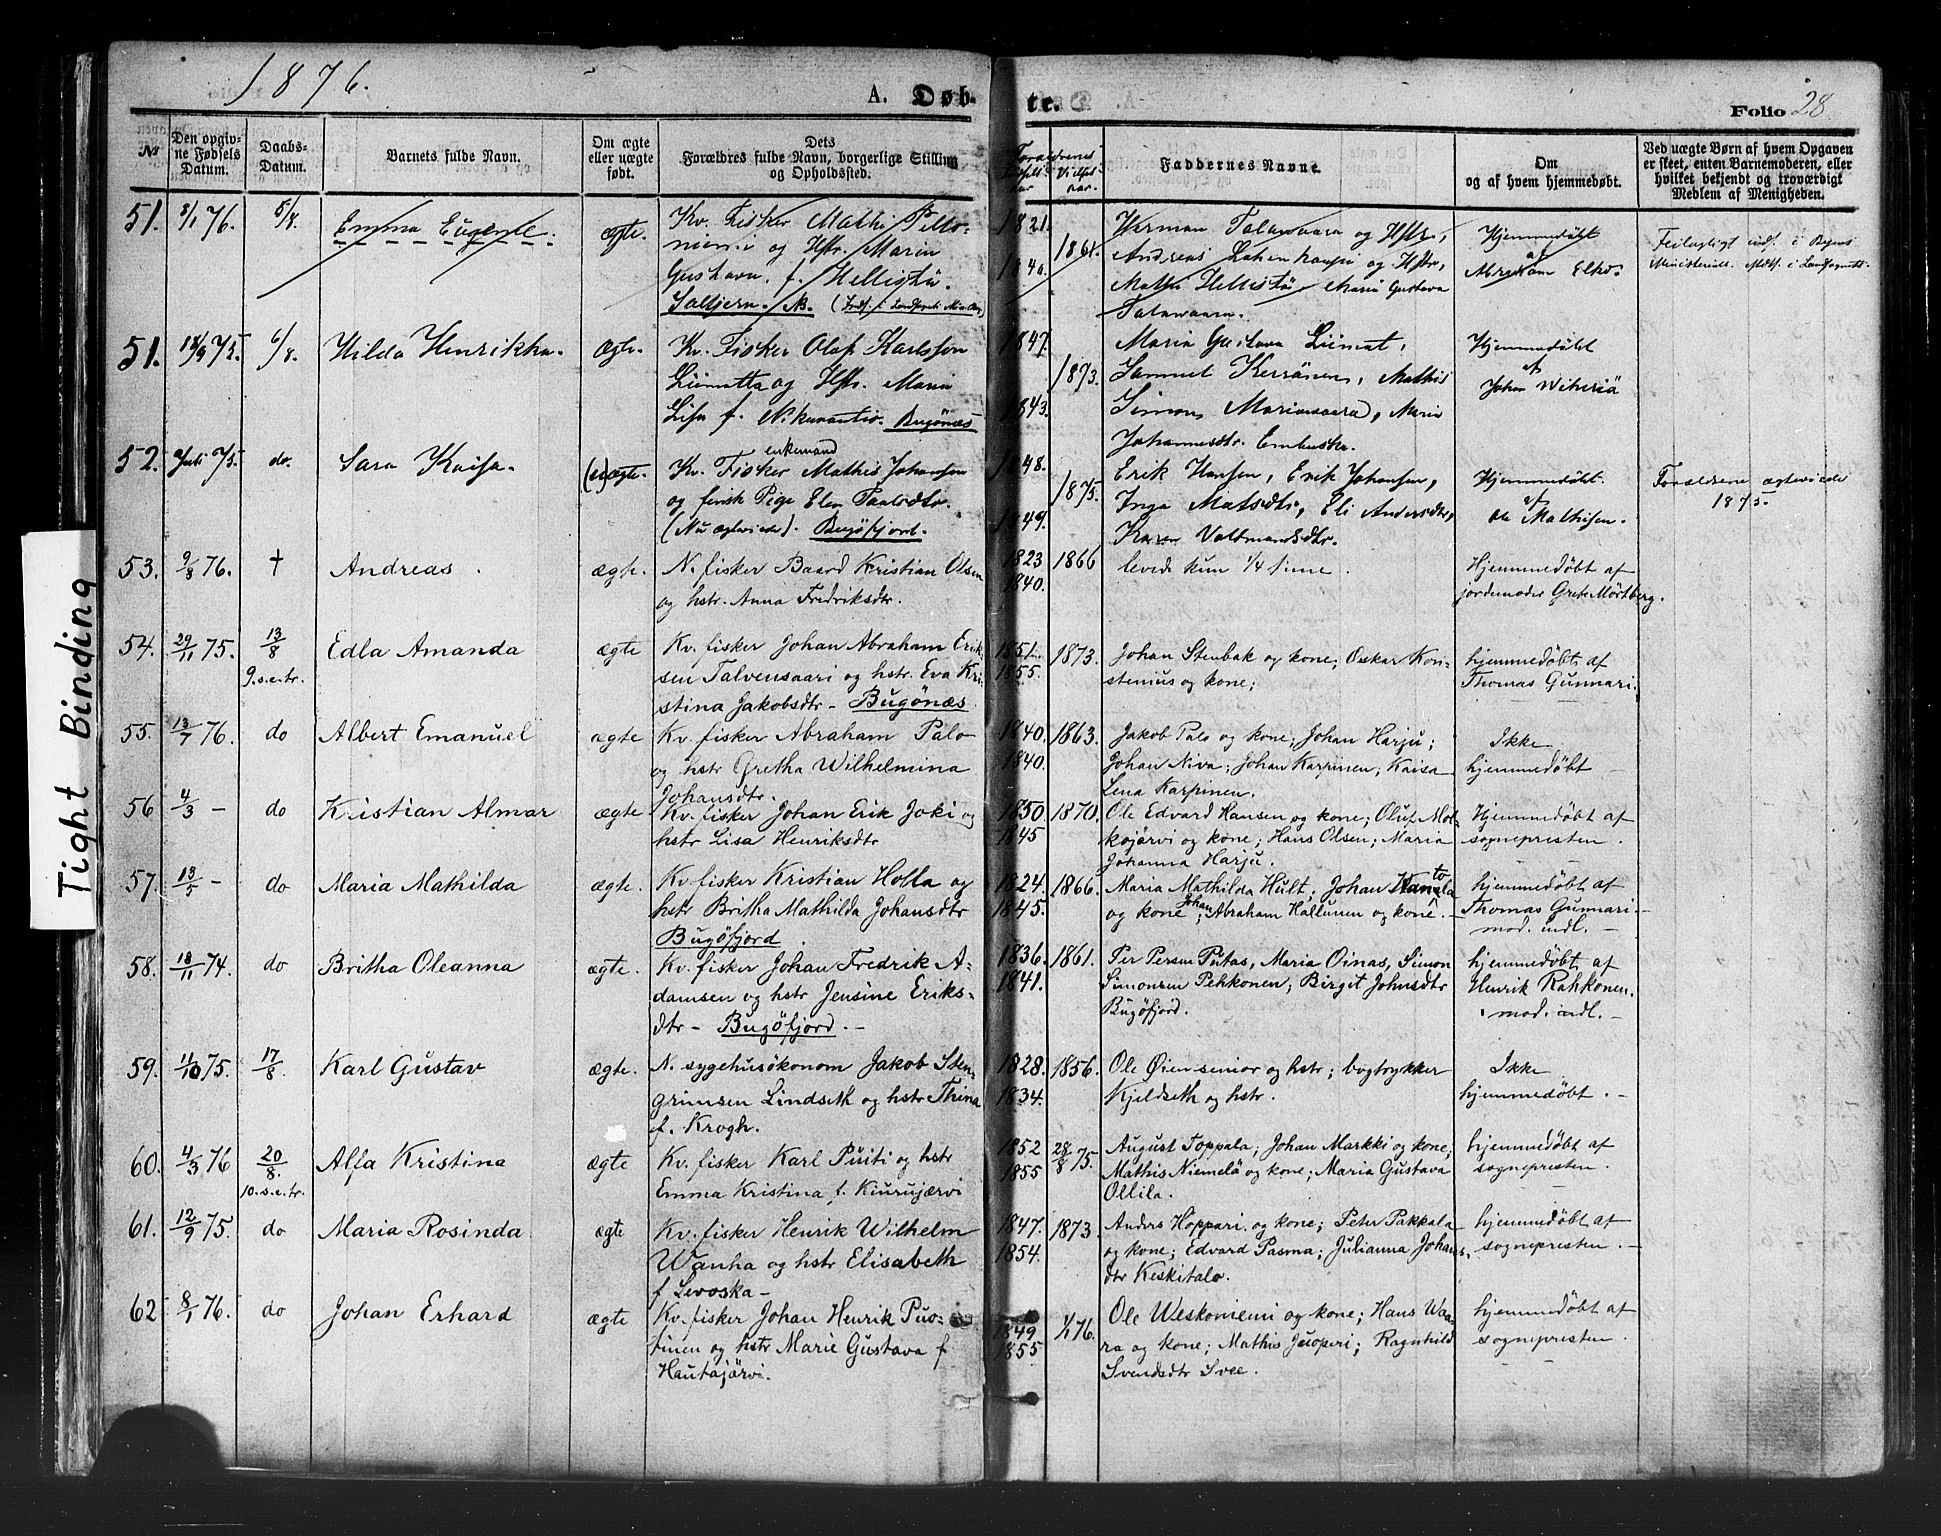 1876.
A. Døb-
te.
Folio 28
№
Den opgiv-
ne Fødsels
Datum.
Daabs-
Datum.
Barnets fulde Navn.
Om ægte
eller uægte
født.
Dets
Forældres fulde Navn, borgerlige Stilling
og Opholdssted.
Faddernes Navne.
Om
og af hvem hjemmedøbt.
Ved uægte Børn af hvem Opgaven
er skeet, enten Barnemoderen, eller
hvilket bekjendt og troværdigt
Medlem af Menigheden.
51. 8/1 76. 5/8. Emma Eugenie. ægte. Kv. Fisker Mathi Pello-
niemi og Hstr. Maria
Gustava. f. Hellistö
1821.
1861.
Herman Talawaara og Hstr,
Andreas og Hstr,
Mathi Hellistö Maria Gustava
Talawaara.
Hjemmedøbt
af
Feilagtigt indf. i Byens
51. 18/9 75. 6/8 Hilda Henrikka. Ægte. Kv. Fisker Olaf Karlsson
Liimatta og Hstr. Maria
Lisa f. Bugönæs
1847.
1873.
1843.
Maria Gustava Liimat,
Samuel Keränen, Mathis
Simons, Maria
Johannesdtr.
Hjemmedøbt
af
Johan
52. Juli 75. do. Sara Kaisa. (u)ægte. Kv. Fisker enkemand Mathis Johansen
og finsk Pige Elen Paulsdtr.
(Nu ægteviede). Bugöfjord.
1848.
1875.
1849.
Erik Hansen, Erik Johansen,
Inga Matsdtr, Eli Andersdtr,
Karen Valdmandsdtr.
Hjemmedøbt
af
Ole Mathisen.
Forældrene ægteviede
1875.
53. 9/8 76. † Andreas. ægte. N. fisker Baard Kristian Olsen
og hstr. Anna Fredriksdtr.
1823
1840.
1866
levede kun 1/4 time.
Hjemmedøbt af
jordemoder Grete Mörtberg.
54. 29/11 75. 13/8
9.s.e.tr.
Edla Amanda ægte Kv. fisker Johan Abraham Erik-
sen Talvensaari og hstr. Eva Kri-
stina Jakobsdtr - Bugönæs.
1851.
1855.
1873.
Johan Stenbak og kone; Oskar Kon-
stenius og kone;
hjemmedøbt af
Thomas Gunnari.
55. 13/7 76. do Albert Emanuel ægte Kv. fisker Abraham Palo
og hstr Gretha Wilhelmina
Johansdtr.
1840
1840.
1863.
Jakob Palo og kone; Johan Harju;
Johan Niva; Johan Karpinen; Kaisa
Lena Karpinen.
Ikke
hjemmedøbt -
56 4/3 - do Kristian Almar ægte Kv. fisker Johan Erik Joki og
hstr Lisa Henriksdtr
1850
1845
1870.
Ole Edvard Hansen og kone; Oluf Mol-
kojärvi og kone; Hans Olsen; Maria
Johanna Harju.
Hjemmedøbt af
sognepresten.
57. 13/5 - do Maria Mathilda ægte. Kv. fisker Kristian Holla og
hstr Britha Mathilda Johansdtr
Bugöfjord.
1824.
1845.
1866.
Maria Mathilda Hult; Johan
og kone; Johan Abraham Hallunen og kone. -
hjemmedøbt af
Thomas Gunnari -
mod. indl. -
58. 18/11 74. do Britha Oleanna ægte. Kv. fisker Johan Fredrik A-
damsen og hstr Jensine Eriks-
dtr - Bugöfjord. -
1836.
1841.
1861.
Per Persen Putas, Maria Oinas, Simon
Simonsen Pehkonen; Birgit Johnsdtr
Bugöfjord.
hjemmedøbt af
Henrik Rahkonen.
mod. indl. -
59. 11/10 75. 17/8. Karl Gustav ægte. N. sygehusökonom Jakob Sten-
grimsen Lindseth og hstr Thina
f. Krogh.
1828.
1834.
1856.
Ole Øien senior og hstr; bogtrykker
Kjeldseth og hstr.
Ikke
hjemmedøbt. -
60. 4/3 76 20/8.
10.s.e.tr.
Alfa Kristina ægte Kv. fisker Karl Puiti og hstr
Emma Kristina f. Kiurujærvi
1852
1855
28/8 75.
August Toppala; Johan Markki og kone;
Mathis Niemelä og kone; Maria Gustava
Ollila.
hjemmedøbt af
sognepresten.
61. 12/9 75. do Maria Rosinda ægte Kv. fisker Henrik Wilhelm
Wanha og hstr Elisabeth
f Levoska -
1847.
1854.
1873
Anders Hoppari og kone; Peter Pakkala
og kone; Edvard Pasma; Julianna Johans-
dtr Keskitalo.
hjemmedøbt af
sognepresten. -
62 8/1 76. do Johan Erhard ægte Kv. fisker Johan Henrik Puo-
tinen og hstr Marie Gustava f
Hautajärvi.
1849
1855
1/1 76.
Ole Weskoniemi og kone; Hans Waa-
ra og kone; Mathis Juoperi; Ragnhild
Svendsdtr Svee.
hjemmedøbt af
sognepresten.
Tight Binding